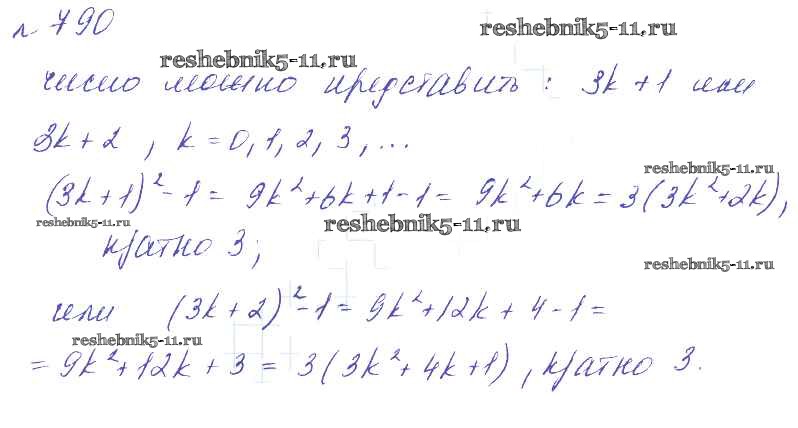 № 790
reshebnik5-11.ru
reshebnik5-11.ru
число можно представить : 3k + 1 или
3k + 2 , k = 0, 1, 2, 3 , ...
reshebnik5-11.ru
(3k + 1)² - 1 = 9k² + 6k + 1 - 1 = 9k² + 6k = 3 (3k² + 2k),
reshebnik5-11.ru
reshebnik5-11.ru
кратно 3;
reshebnik5-11.ru
или (3k + 2)² - 1 = 9k² + 12k + 4 - 1 =
reshebnik5-11.ru
= 9k² + 12k + 3 = 3 (3k² + 4k + 1) , кратно 3.